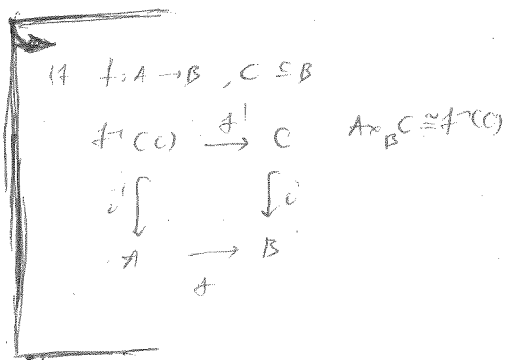 If f: A → B , C ⊆ B
f⁻¹(C) → f' C A ×_B C ≅ f⁻¹(C)
i' i
A → B
f